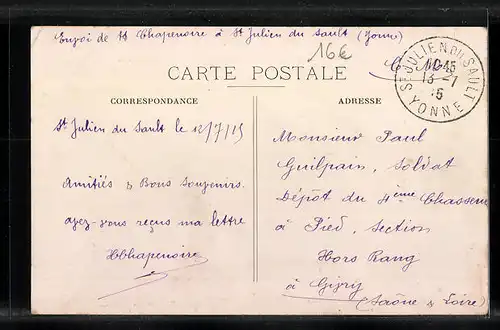 Envoi de H Chapenoire à St Julien du Sault (Yonne)
16€
CARTE POSTALE
St JULIEN DU SAULT
10 45
13 - 7
15
YONNE
CORRESPONDANCE
ADRESSE
St Julien du Sault le 12/7/15
Amitiés & Bons Souvenirs.
avez-vous reçus ma lettre
HChapenoire
Monsieur Paul
Guilpain, Soldat
Dépôt du 4ème Chasseur
à Pied, Section
Hors Rang
à Givry
(Saône & Loire)